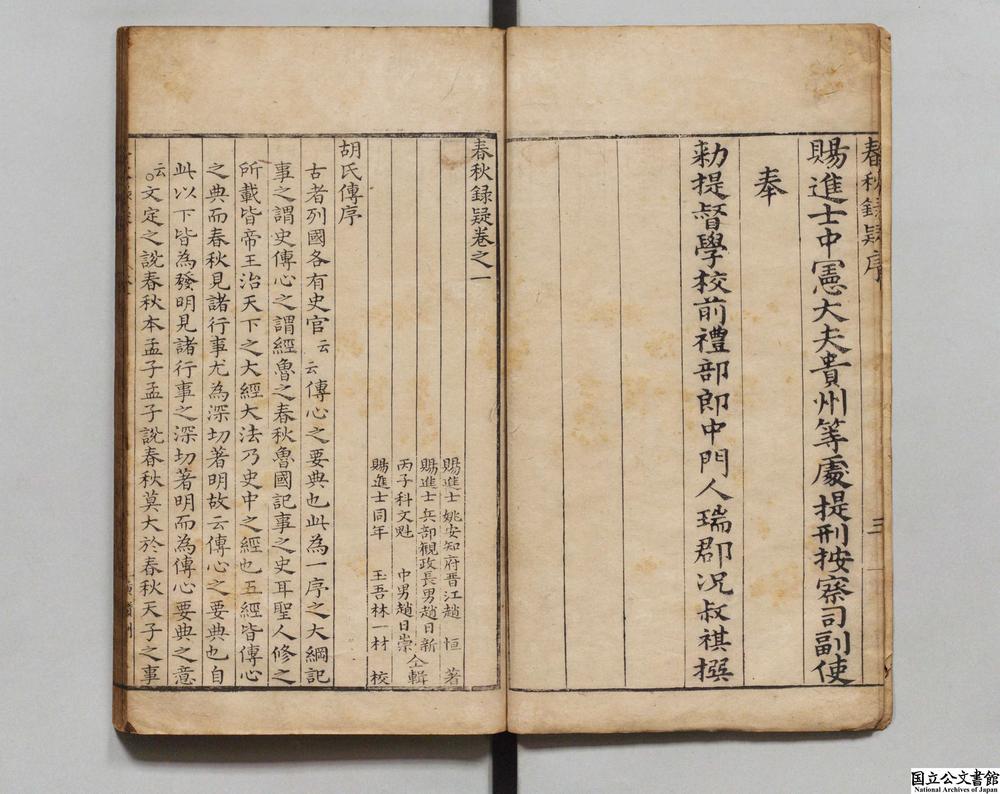 春秋録疑序
三
賜進士中憲大夫貴州等處提刑按察司副使
奉
勑提督學校前禮部郎中門人瑞郡况叔祺撰
春秋録疑卷之一
賜進士姚安知府晋江趙恒著
賜進士兵部觀政長男趙日新
丙子科文魁中男趙日崇仝輯
賜進士同年玉吾林一材校
胡氏傳序
古者列國各有史官云云傳心之要典也此為一序之大綱記
事之謂史傳心之謂經魯之春秋魯國記事之史耳聖人修之
所載皆帝王治天下之大經大法乃史中之經也五經皆傳心
之典而春秋見諸行事尤為深切著明故云傳心之要典也自
此以下皆為發明見諸行事之深切著明而為傳心要典之意
云。文定之說春秋本孟子孟子說春秋莫大於春秋天子之事
国立公文書館
National Archives of Japan